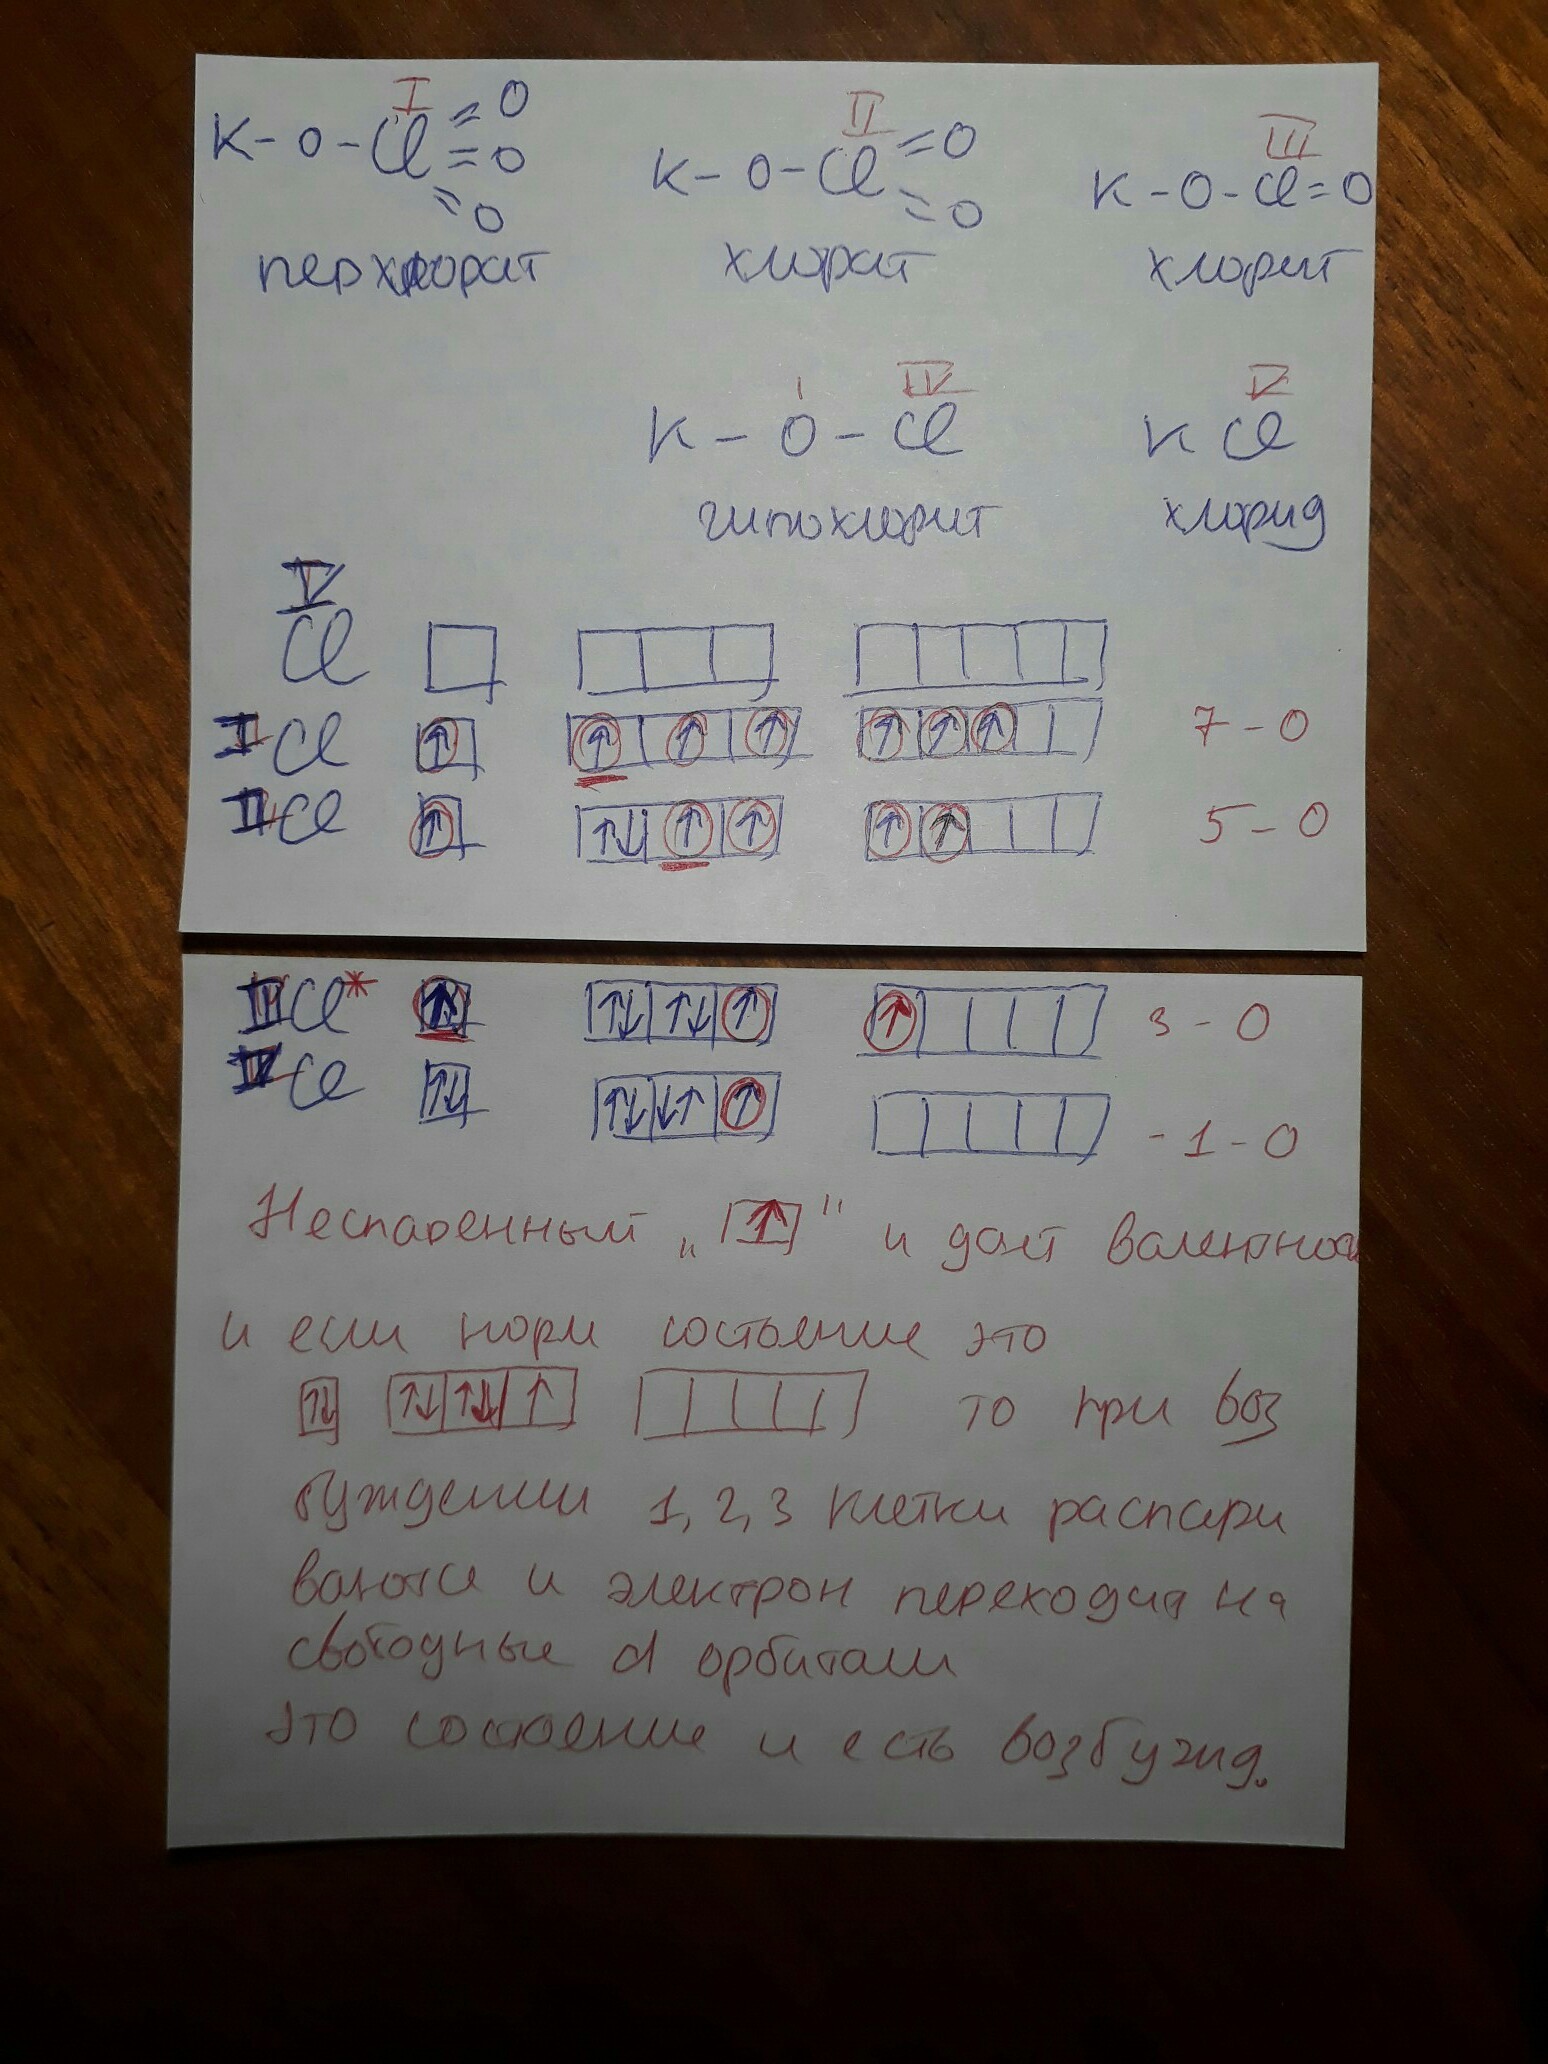 I II III
K - O - Cl = O = O = O K - O - Cl = O = O K - O - Cl = O
перхлорат хлорат хлорит
IV V
K - O - Cl K Cl
гипохлорит хлорид
V
Cl
I Cl ↑ ↑ ↑ ↑ ↑ ↑ ↑ 7 - O
II Cl ↑ ↑↓ ↑ ↑ ↑ ↑ 5 - O
III Cl* ↑↓ ↑↓ ↑ ↑ 3 - O
IV Cl ↑↓ ↑↓ ↓↑ ↑ - 1 - O
Неспаренный „↑" и дает валентнос
и если норм состояние это
↑↓ ↑↓ ↑↓ ↑ то при воз
буждении 1, 2, 3 клетки распари
ваются и электрон переходит на
свободные d орбитали
это состояние и есть возбужд.